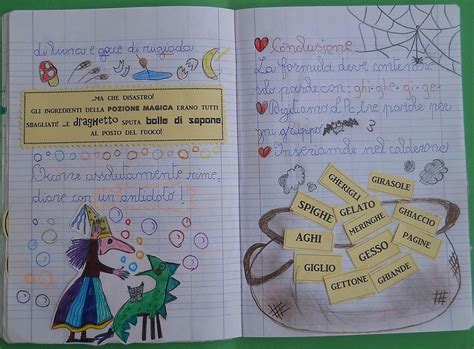 di luna e gocce di rugiada
...MA CHE DISASTRO!
GLI INGREDIENTI DELLA POZIONE MAGICA ERANO TUTTI
SBAGLIATI! ...E draghetto SPUTA bolle di sapone
AL POSTO DEL FUOCO!
Occorre assolutamente rime
diare con un antidoto!
Conclusione
La formula deve contenere
solo parole con: ghi-ghe-gi-ge-
parole per
ogni gruppo
Inseriamole nel calderone
GHERIGLI
GIRASOLE
SPIGHE
GELATO
MERINGHE
GHIACCIO
AGHI
GESSO
PAGINE
GIGLIO
GETTONE
GHIANDE